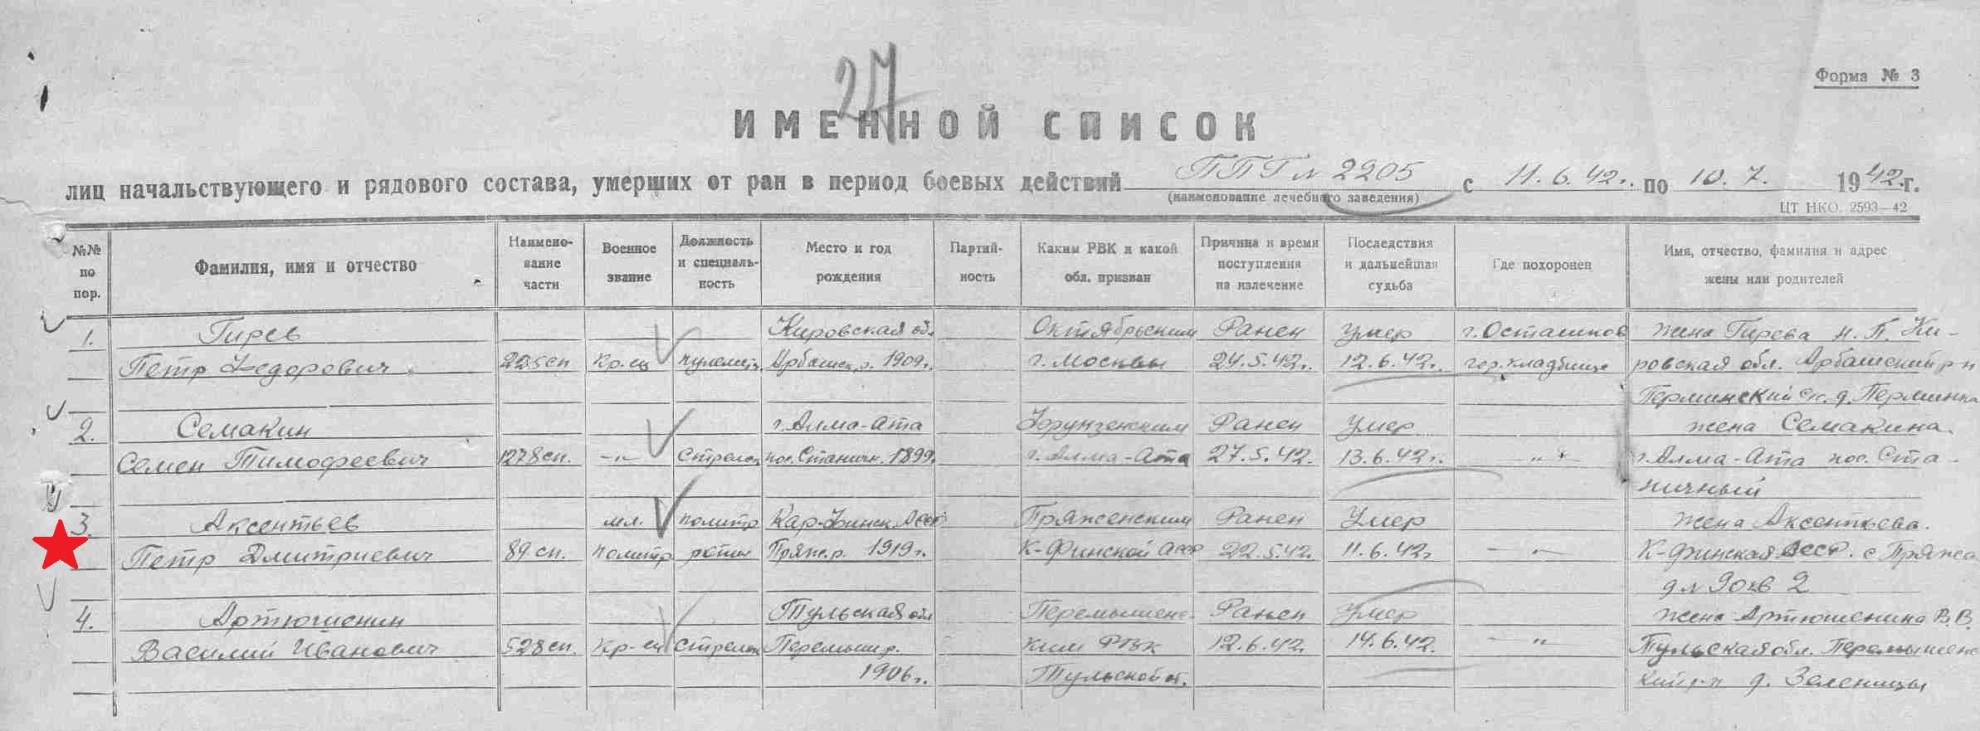 27
Форма № 3
ИМЕННОЙ СПИСОК
лиц начальствующего и рядового состава, умерших от ран в период боевых действий ППГ № 2205 с 11.6.42г. по 10.7. 1942г.
(наименование лечебного заведения)
ЦТ НКО. 2593—42
№№ по пор.
Фамилия, имя и отчество
Наимено-вание части
Военное звание
Должность и специаль-ность
Место и год рождения
Партий-ность
Каким РВК и какой обл. призван
Причина и время поступления на излечение
Последствия и дальнейшая судьба
Где похоронен
Имя, отчество, фамилия и адрес жены или родителей
1. Гирев Кировская об. Октябрьским Ранен Умер г. Осташков жена Гирева Н. П. Ки-
Петр Федорович 225сп Кр-ец пулеметч. Арбашск. р. 1909г. г. Москвы 24.5.42г. 12.6.42г. гор. кладбище ровская обл. Арбашский р-н
с/с. д. Перминка
2. Семакин г. Алма-Ата Фрунзенским Ранен Умер жена Семакина
Семен Тимофеевич 1278сп. -"- Стрелок пос. Станичн. 1899. г. Алма-Ата 27.5.42. 13.6.42г. " г. Алма-Ата пос. Ста-
ничный
3. Аксентьев мл. политр Кар-Финск. АССР Пряженским Ранен Умер жена Аксентьева.
Петр Дмитриевич 89 сп. политр роты Пряж. р. 1919г. К-Финской АССР 22.5.42. 11.6.42г -"- К-Финская АССР. с Пряжа
д № 90 кв 2
4. Артюшенин Тульская обл Перемышлъс- Ранен Умер жена Артюшенина В.В.
Василий Иванович 528сп. Кр-ец Стрелок Перемыш. р. ким РВК 12.6.42. 14.6.42. -"- Тульская обл. Перемышльс
1906г. Тульской об. кий р-н д. Зеленицы